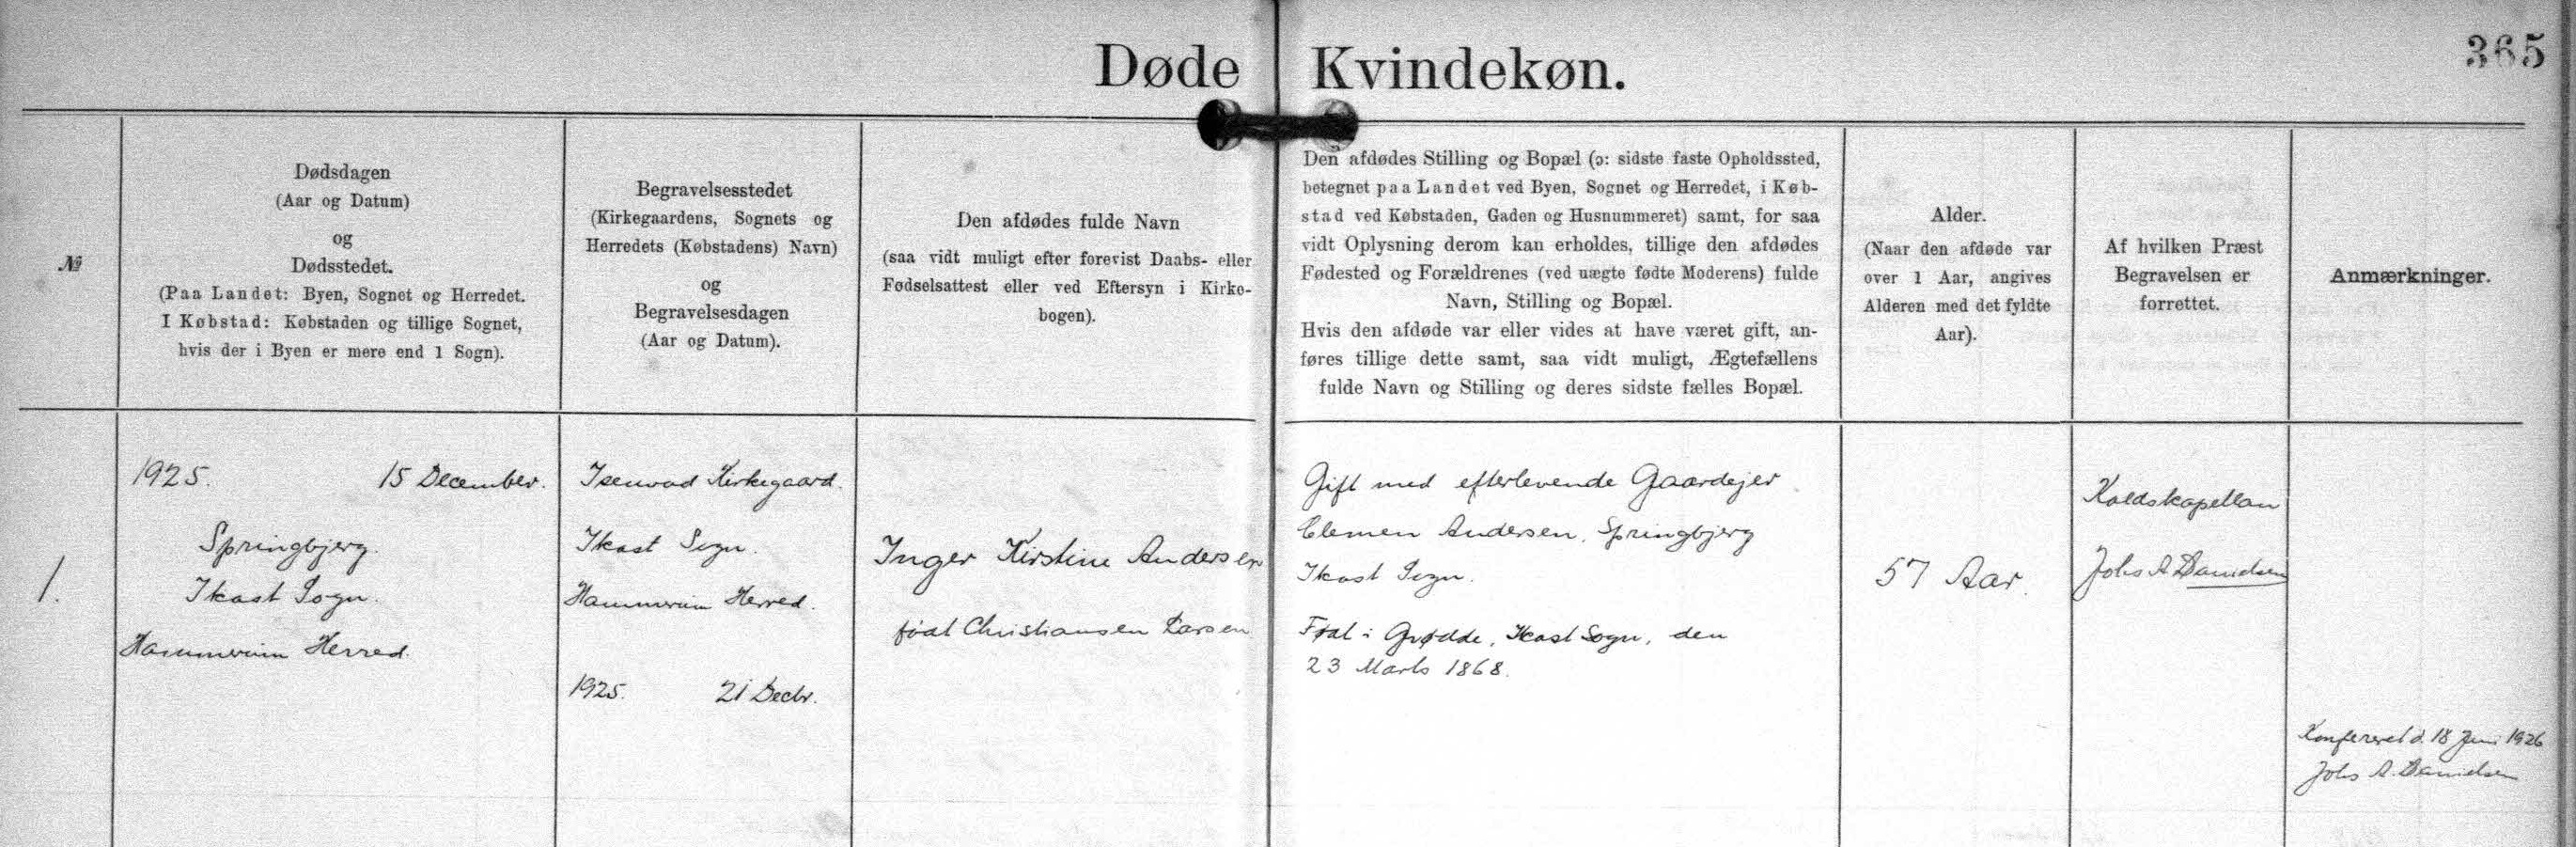 365
Døde Kvindekøn.
№
Dødsdagen
(Aar og Datum)
og
Dødsstedet.
(Paa Landet: Byen, Sognet og Herredet.
I Købstad: Købstaden og tillige Sognet,
hvis der i Byen er mere end 1 Sogn).
Begravelsesstedet
(Kirkegaardens, Sognets og
Herredets (Købstadens) Navn)
og
Begravelsesdagen
(Aar og Datum).
Den afdødes fulde Navn
(saa vidt muligt efter forevist Daabs- eller
Fødselsattest eller ved Eftersyn i Kirke-
bogen).
Den afdødes Stilling og Bopæl (ɔ: sidste faste Opholdssted,
betegnet paa Landet ved Byen, Sognet og Herredet, i Køb-
stad ved Købstaden, Gaden og Husnummeret) samt, for saa
vidt Oplysning derom kan erholdes, tillige den afdødes
Fødested og Forældrenes (ved uægte fødte Moderens) fulde
Navn, Stilling og Bopæl.
Hvis den afdøde var eller vides at have været gift, an-
føres tillige dette samt, saa vidt muligt, Ægtefællens
fulde Navn og Stilling og deres sidste fælles Bopæl.
Alder.
(Naar den afdøde var
over 1 Aar, angives
Alderen med det fyldte
Aar).
Af hvilken Præst
Begravelsen er
forrettet.
Anmærkninger.
1.
1925. 15 December.
Springbjerg.
Ikast Sogn.
Hammerum Herred.
Isenvad Kirkegaard.
Ikast Sogn.
Hammerum Herred.
1925. 21 Decbr.
Inger Kirstine Andersen
født Christiansen Larsen
Gift med efterlevende Gaardejer
Clemen Andersen, Springbjerg
Ikast Sogn.
Født i Grødde, Ikast Sogn, den
23 Marts 1868.
57 Aar.
Kaldskapellan
Johs A Danielsen
Konfereret d. 18 Juni 1926
Johs A. Danielsen